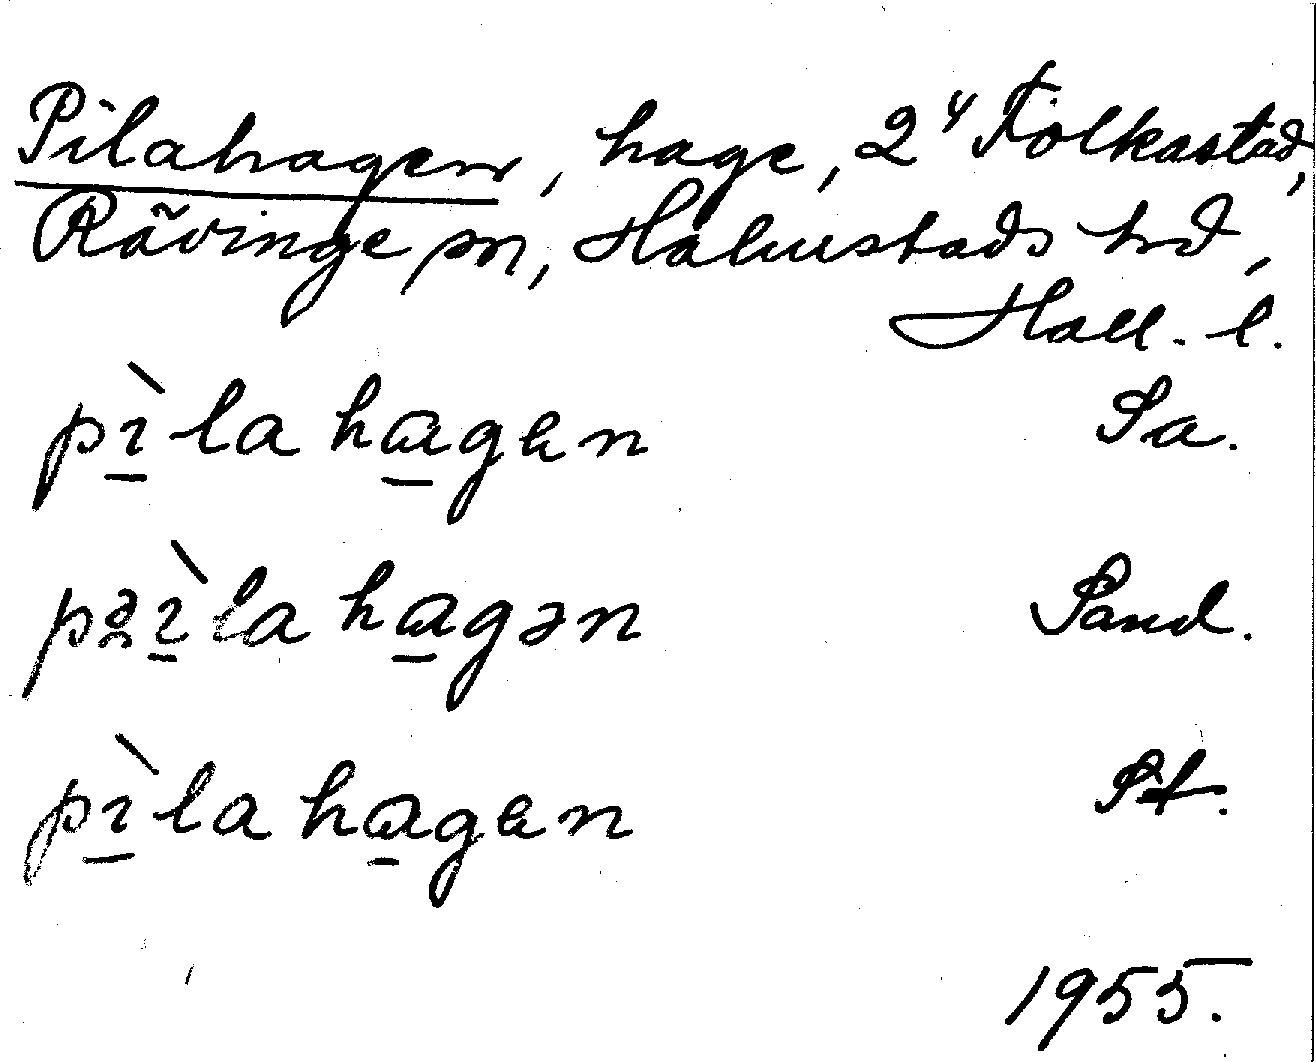 Pilahagen, hage, 2⁴ Folkastad,
Rävinge sn, Halmstads hd,
Hall. l.
pìlahagen Sa.
pəìlahagən Sand.
pìlahagen St.
1955.